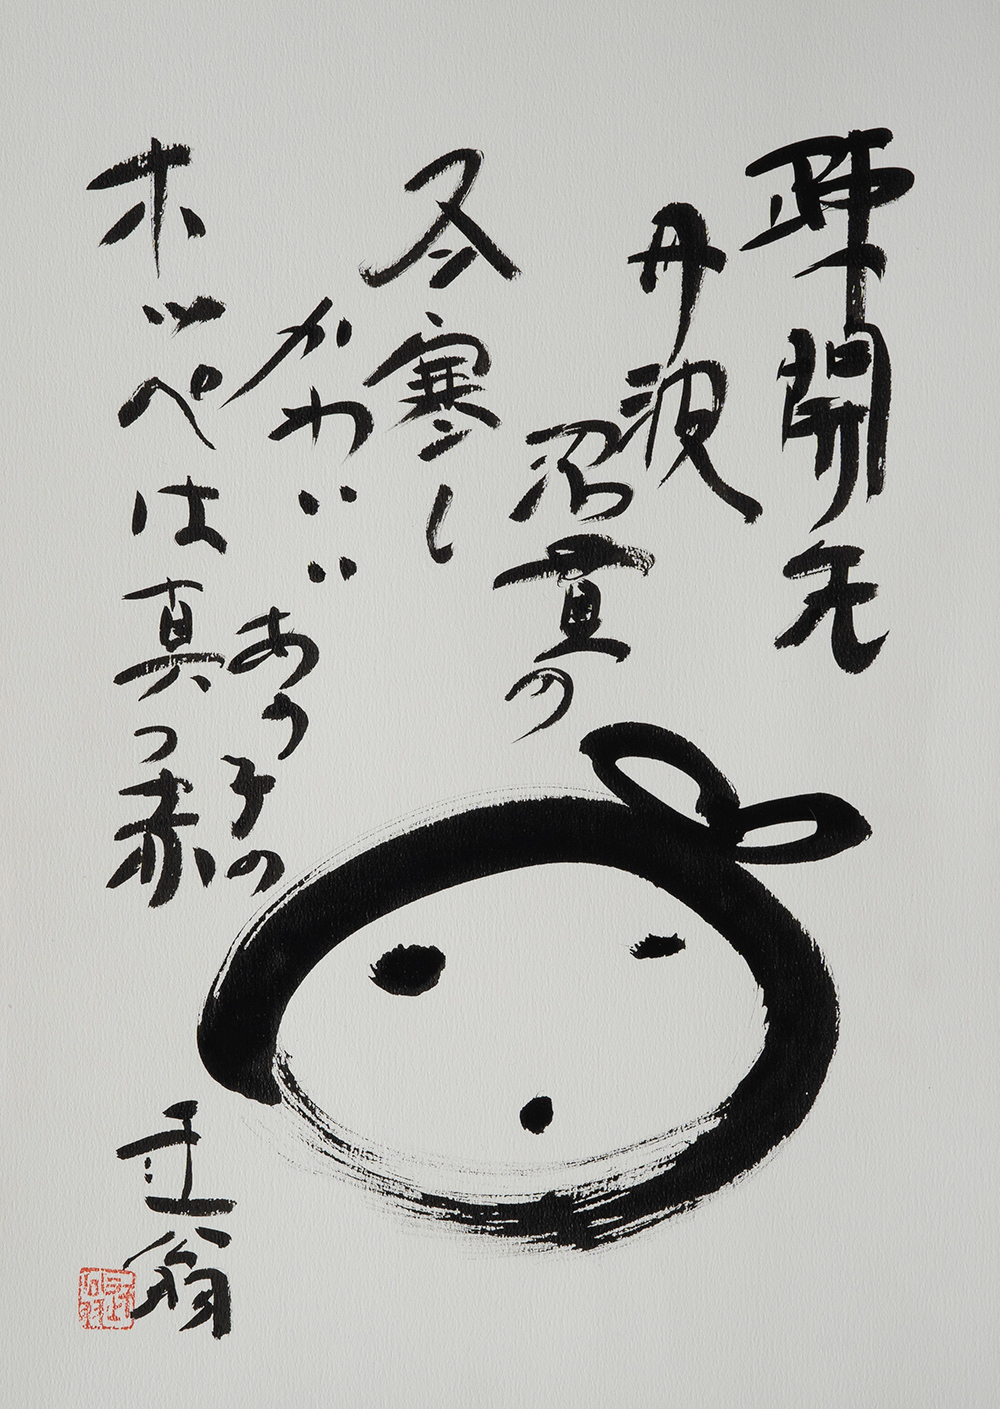 開
丹波
沼貫の
冬寒し
かわいいあの子の
ホッペは真っ赤
翁